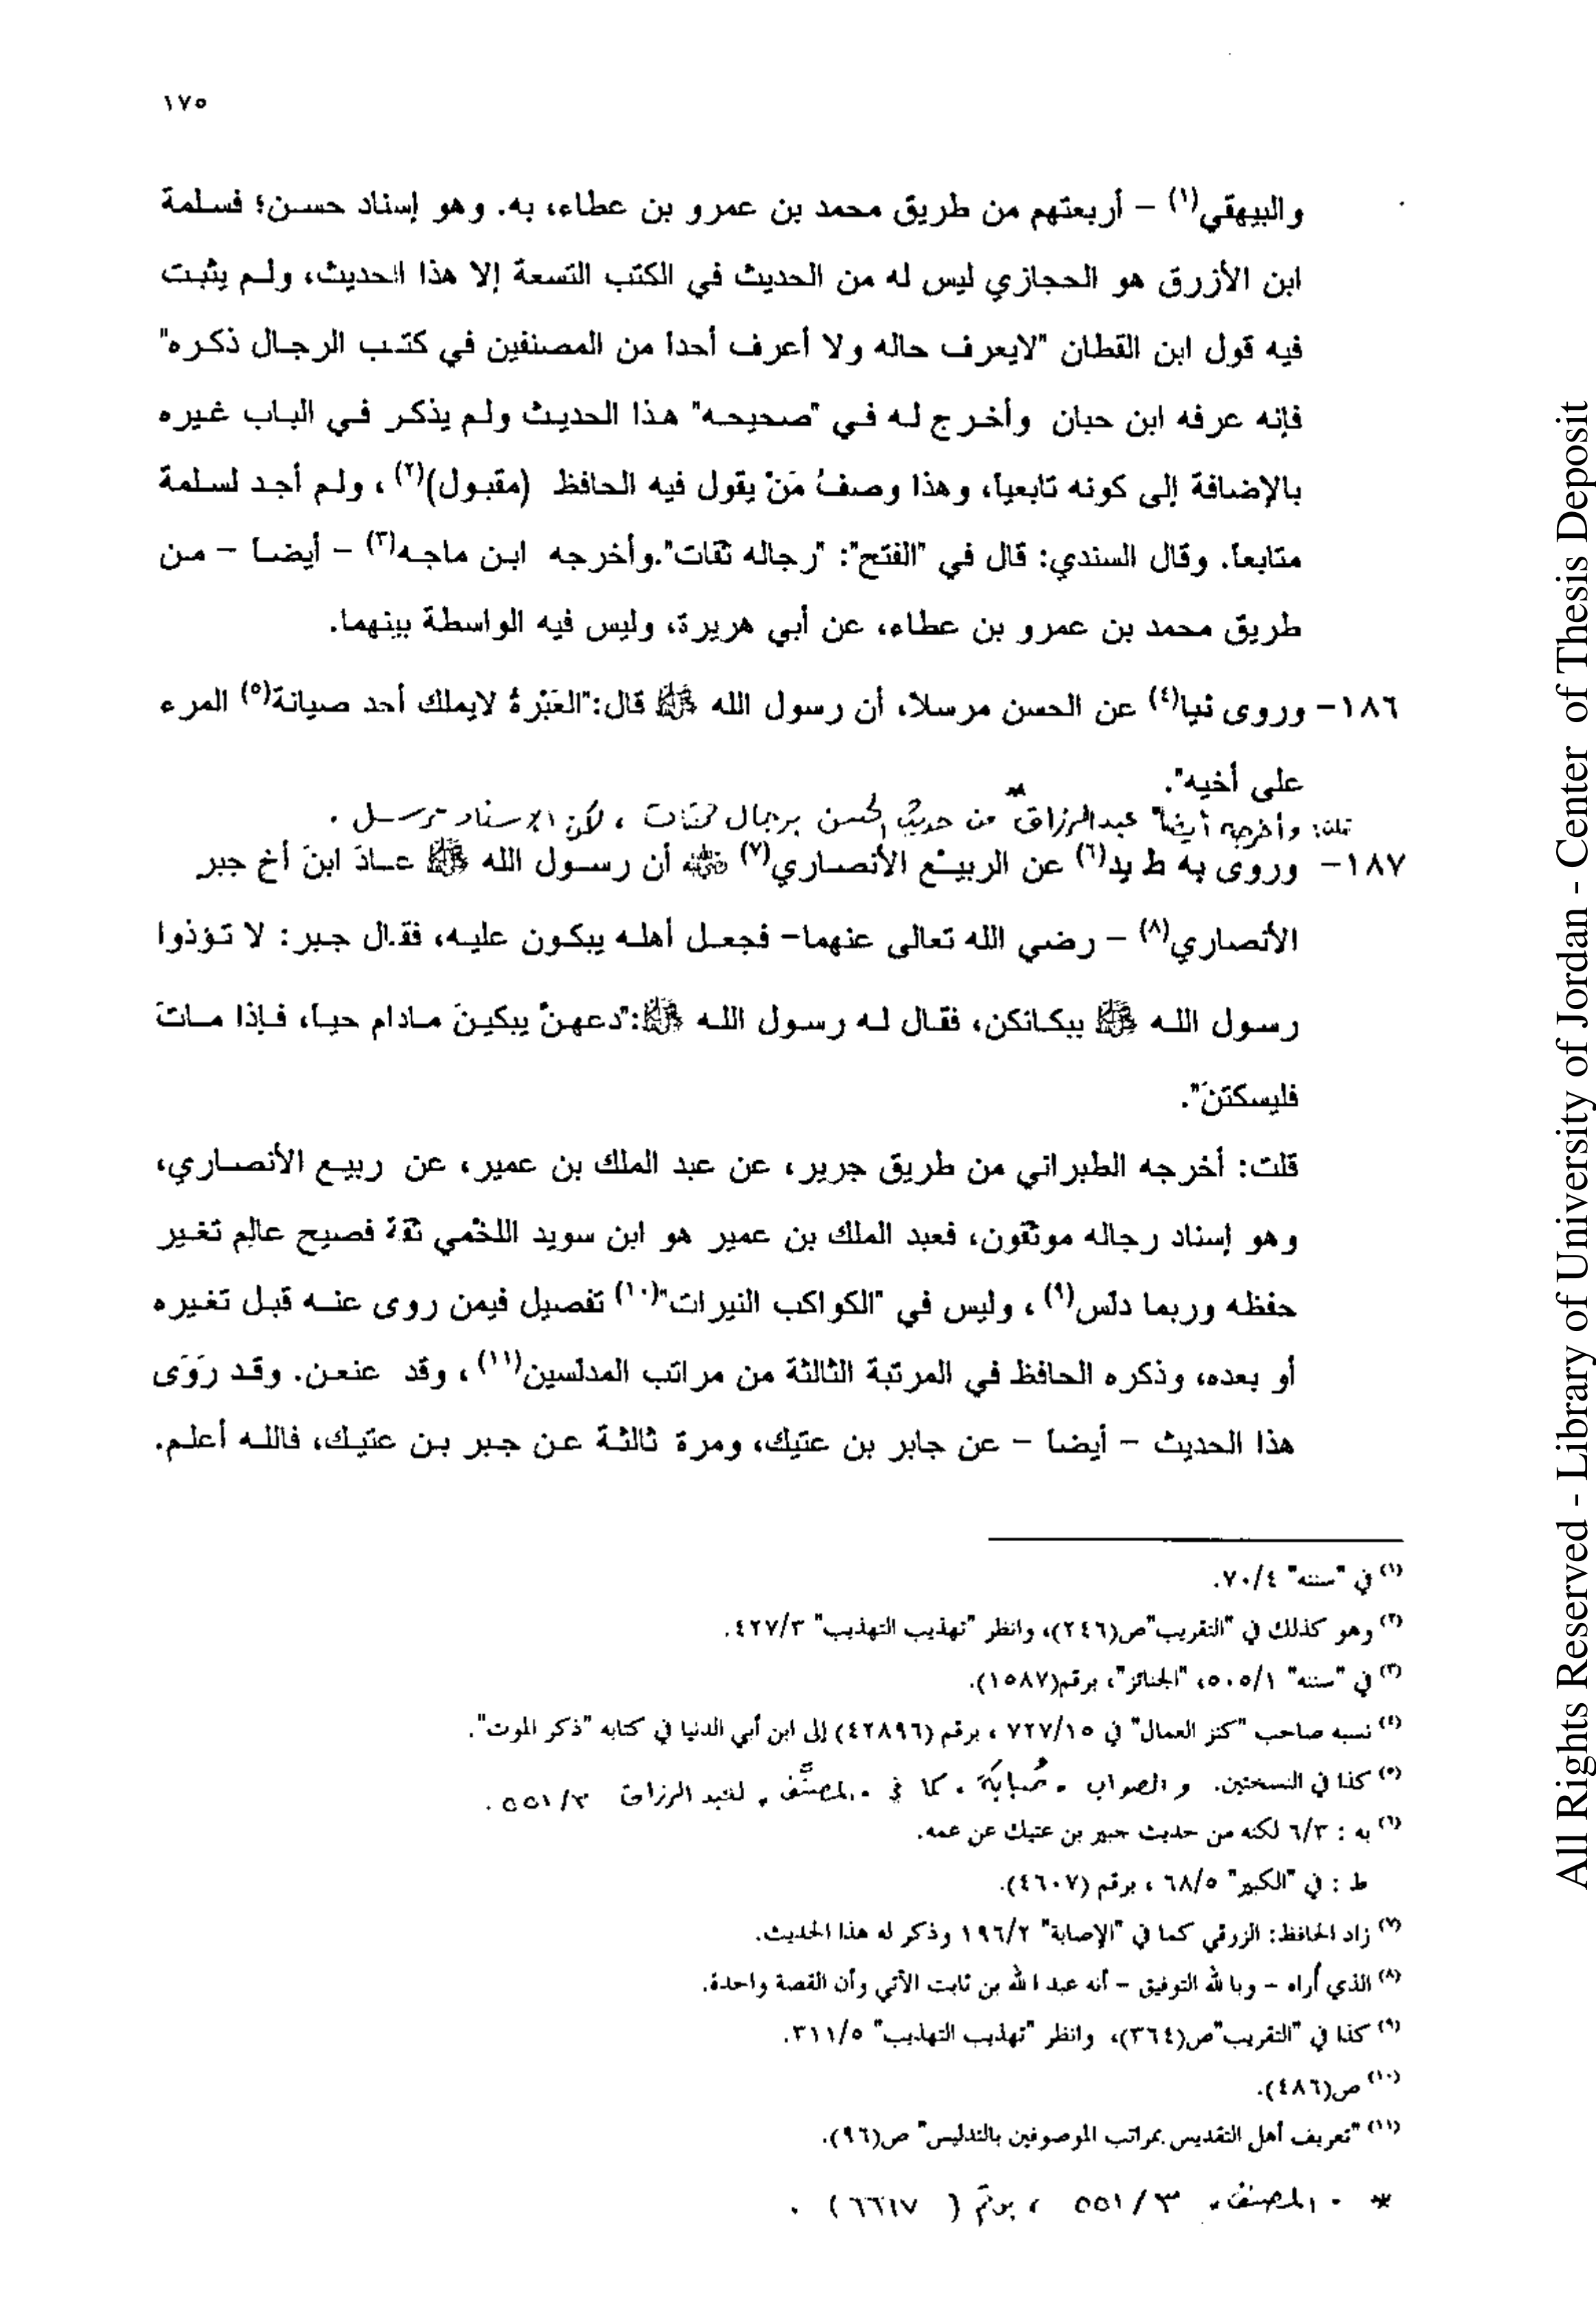 ١٧٥
والبيهقي(١) – أربعتهم من طريق محمد بن عمرو بن عطاء، به. وهو إسناد حسن؛ فسلمة
ابن الأزرق هو الحجازي ليس له من الحديث في الكتب التسعة إلا هذا الحديث، ولم يثبت
فيه قول ابن القطان "لايعرف حاله ولا أعرف أحداً من المصنفين في كتب الرجال ذكره"
فإنه عرفه ابن حبان وأخرج له في "صحيحه" هذا الحديث ولم يذكر في الباب غيره
بالإضافة إلى كونه تابعياً، وهذا وصفُ مَنْ يقول فيه الحافظ (مقبول)(٢)، ولم أجد لسلمة
متابعاً. وقال السندي: قال في "الفتح": "رجاله ثقات".وأخرجه ابن ماجه(٣) – أيضا – من
طريق محمد بن عمرو بن عطاء، عن أبي هريرة، وليس فيه الواسطة بينهما.
١٨٦– وروى نيا(٤) عن الحسن مرسلا، أن رسول الله ﷺ قال:"العَبْرةُ لايملك أحد صيانة(٥) المرء
على أخيه".
قلت: وأخرجه أيضاً عبدالرزاق* من حديث الحسن برجال ثقات، لكن الإسناد مرسل.
١٨٧– وروى به ط يد(٦) عن الربيع الأنصاري(٧) رضي الله عنه أن رسول الله ﷺ عادَ ابنَ أخ جبر
الأنصاري(٨) – رضي الله تعالى عنهما– فجعل أهله يبكون عليه، فقال جبر: لا تؤذوا
رسول الله ﷺ ببكائكن، فقال له رسول الله ﷺ:"دعهنّ يبكينَ مادام حيا، فإذا ماتَ
فليسكتنَ".
قلت: أخرجه الطبراني من طريق جرير، عن عبد الملك بن عمير، عن ربيع الأنصاري،
وهو إسناد رجاله موثقون، فعبد الملك بن عمير هو ابن سويد اللخْمي ثقة فصيح عالِم تغير
حفظه وربما دلّس(٩)، وليس في "الكواكب النيرات"(١٠) تفصيل فيمن روى عنه قبل تغيره
أو بعده، وذكره الحافظ في المرتبة الثالثة من مراتب المدلّسين(١١)، وقد عنعن. وقد رَوَى
هذا الحديث – أيضا – عن جابر بن عتيك، ومرة ثالثة عن جبر بن عتيك، فالله أعلم.
(١) في "سننه" ٧٠/٤.
(٢) وهو كذلك في "التقريب"ص(٢٤٦)، وانظر "تهذيب التهذيب" ٤٢٧/٣.
(٣) في "سننه" ٥٠٥/١، "الجنائز"، برقم(١٥٨٧).
(٤) نسبه صاحب "كنز العمال" في ٧٢٧/١٥ ، برقم (٤٢٨٩٦) إلى ابن أبي الدنيا في كتابه "ذكر الموت".
(٥) كذا في النسختين. والصواب "صُبابَة" كما في "المصنَّف" لعبد الرزاق ٥٥١/٣.
(٦) به : ٦/٣ لكنه من حديث جبير بن عتيك عن عمه.
ط : في "الكبير" ٦٨/٥ ، برقم (٤٦٠٧).
(٧) زاد الحافظ: الزرقي كما في "الإصابة" ١٩٦/٢ وذكر له هذا الحديث.
(٨) الذي أُراه – وبالله التوفيق – أنه عبد الله بن ثابت الآتي وأن القصة واحدة.
(٩) كذا في "التقريب"ص(٣٦٤)، وانظر "تهذيب التهذيب" ٣١١/٥.
(١٠) ص(٤٨٦).
(١١) "تعريف أهل التقديس بمراتب الموصوفين بالتدليس" ص(٩٦).
* "المصنف" ٥٥١/٣ ، برقم (٦٦١٧).
All Rights Reserved - Library of University of Jordan - Center of Thesis Deposit